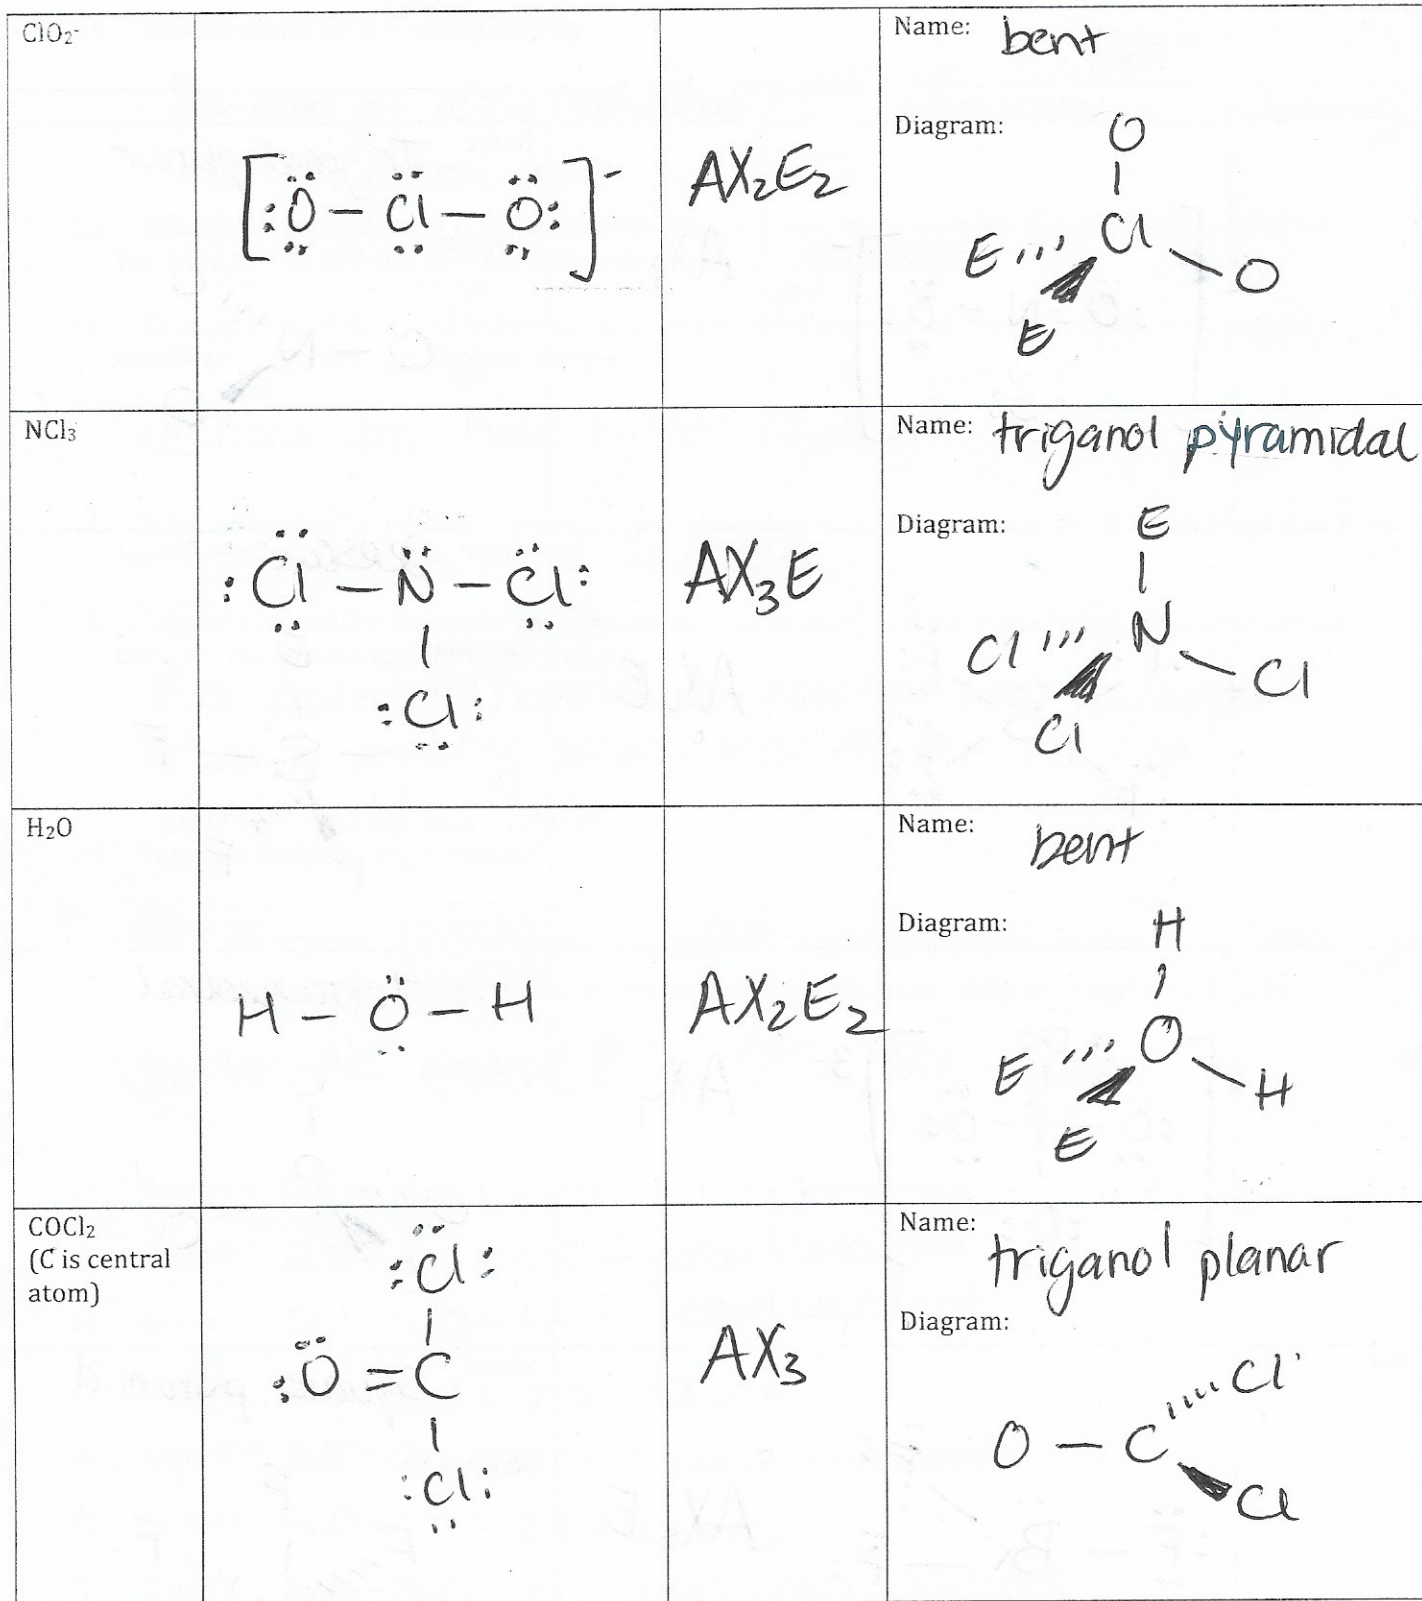 ClO₂⁻
[:Ö – Cl – Ö:]⁻
AX₂E₂
Name: bent
Diagram:
O
Cl
E
O
E
NCl₃
:Cl – N – Cl:
:Cl:
AX₃E
Name: triganol pyramidal
Diagram:
E
N
Cl
Cl
Cl
H₂O
H – Ö – H
AX₂E₂
Name: bent
Diagram:
H
O
E
H
E
COCl₂
(C is central
atom)
:Cl:
:Ö = C
:Cl:
AX₃
Name: triganol planar
Diagram:
Cl
O – C
Cl